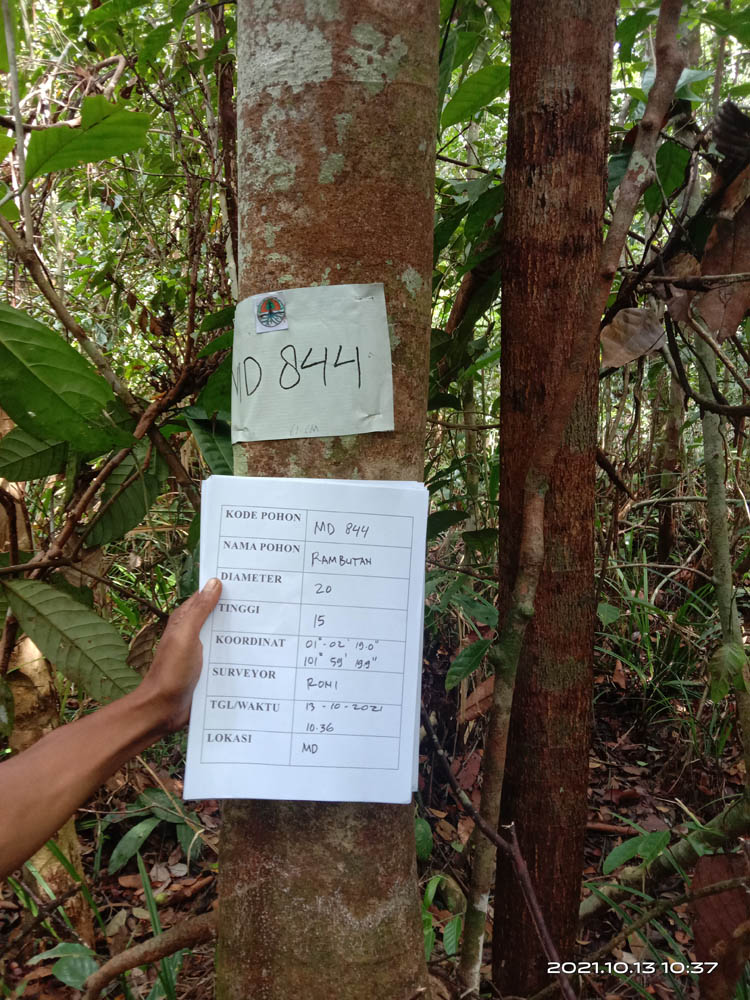 MD 844
KODE POHON MD 844
NAMA POHON RAMBUTAN
DIAMETER 20
TINGGI 15
KOORDINAT 01° - 02' 19.0"
101° 59' 19.9"
SURVEYOR RONI
TGL/WAKTU 13 - 10 - 2021
10.36
LOKASI MD
2021.10.13 10:37